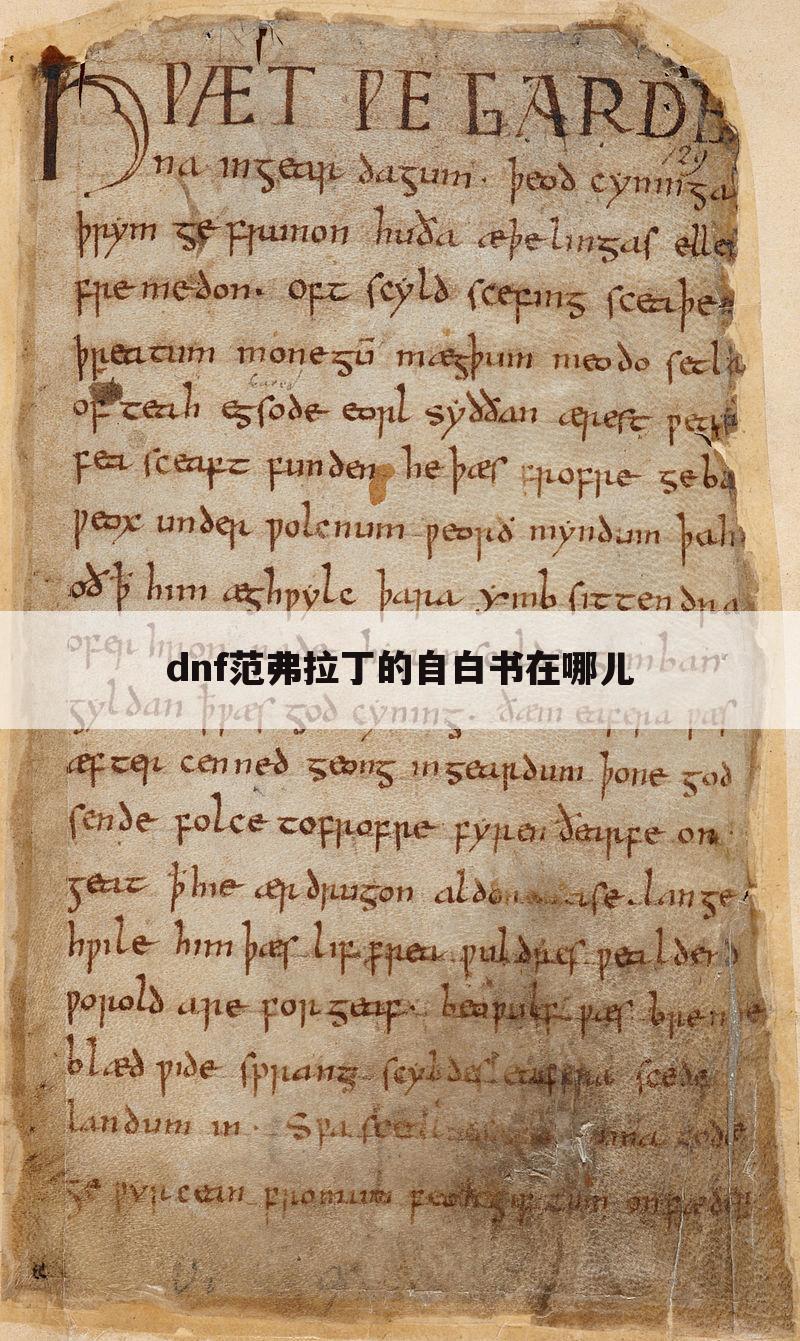 HǷÆT ǷE GARDE
na ingear dagum. þeod cyninga
þrym ge frunon huða æþelingas elle
fremedon. oft scyld scefing sceaþe
þreatum monegū mægþum meodo setla
of teah egsode eorl syððan ærest ƿear
fea sceaft funden he þæs frofre geba
ƿeox under ƿolcnum ƿeorð myndum þah
oð þ̄ him æghƿylc þara ymb sittendra
ofer
dnf范弗拉丁的自白书在哪儿
gyldan þƿæs god cyning. ðæm eafera ƿæs
æfter cenned geong ingeardum þone god
sende folce tofrofre fyren ðearfe on
geat þ̄ hie ær drugon aldor ase. lange
hƿile him þæs lif frea ƿuldres ƿealdend
ƿorold are for geaf. beoƿulf ƿæs breme
blæd ƿide sprang scyldes eafera scede
landum in. Sƿa
ge ƿyrcean fromum